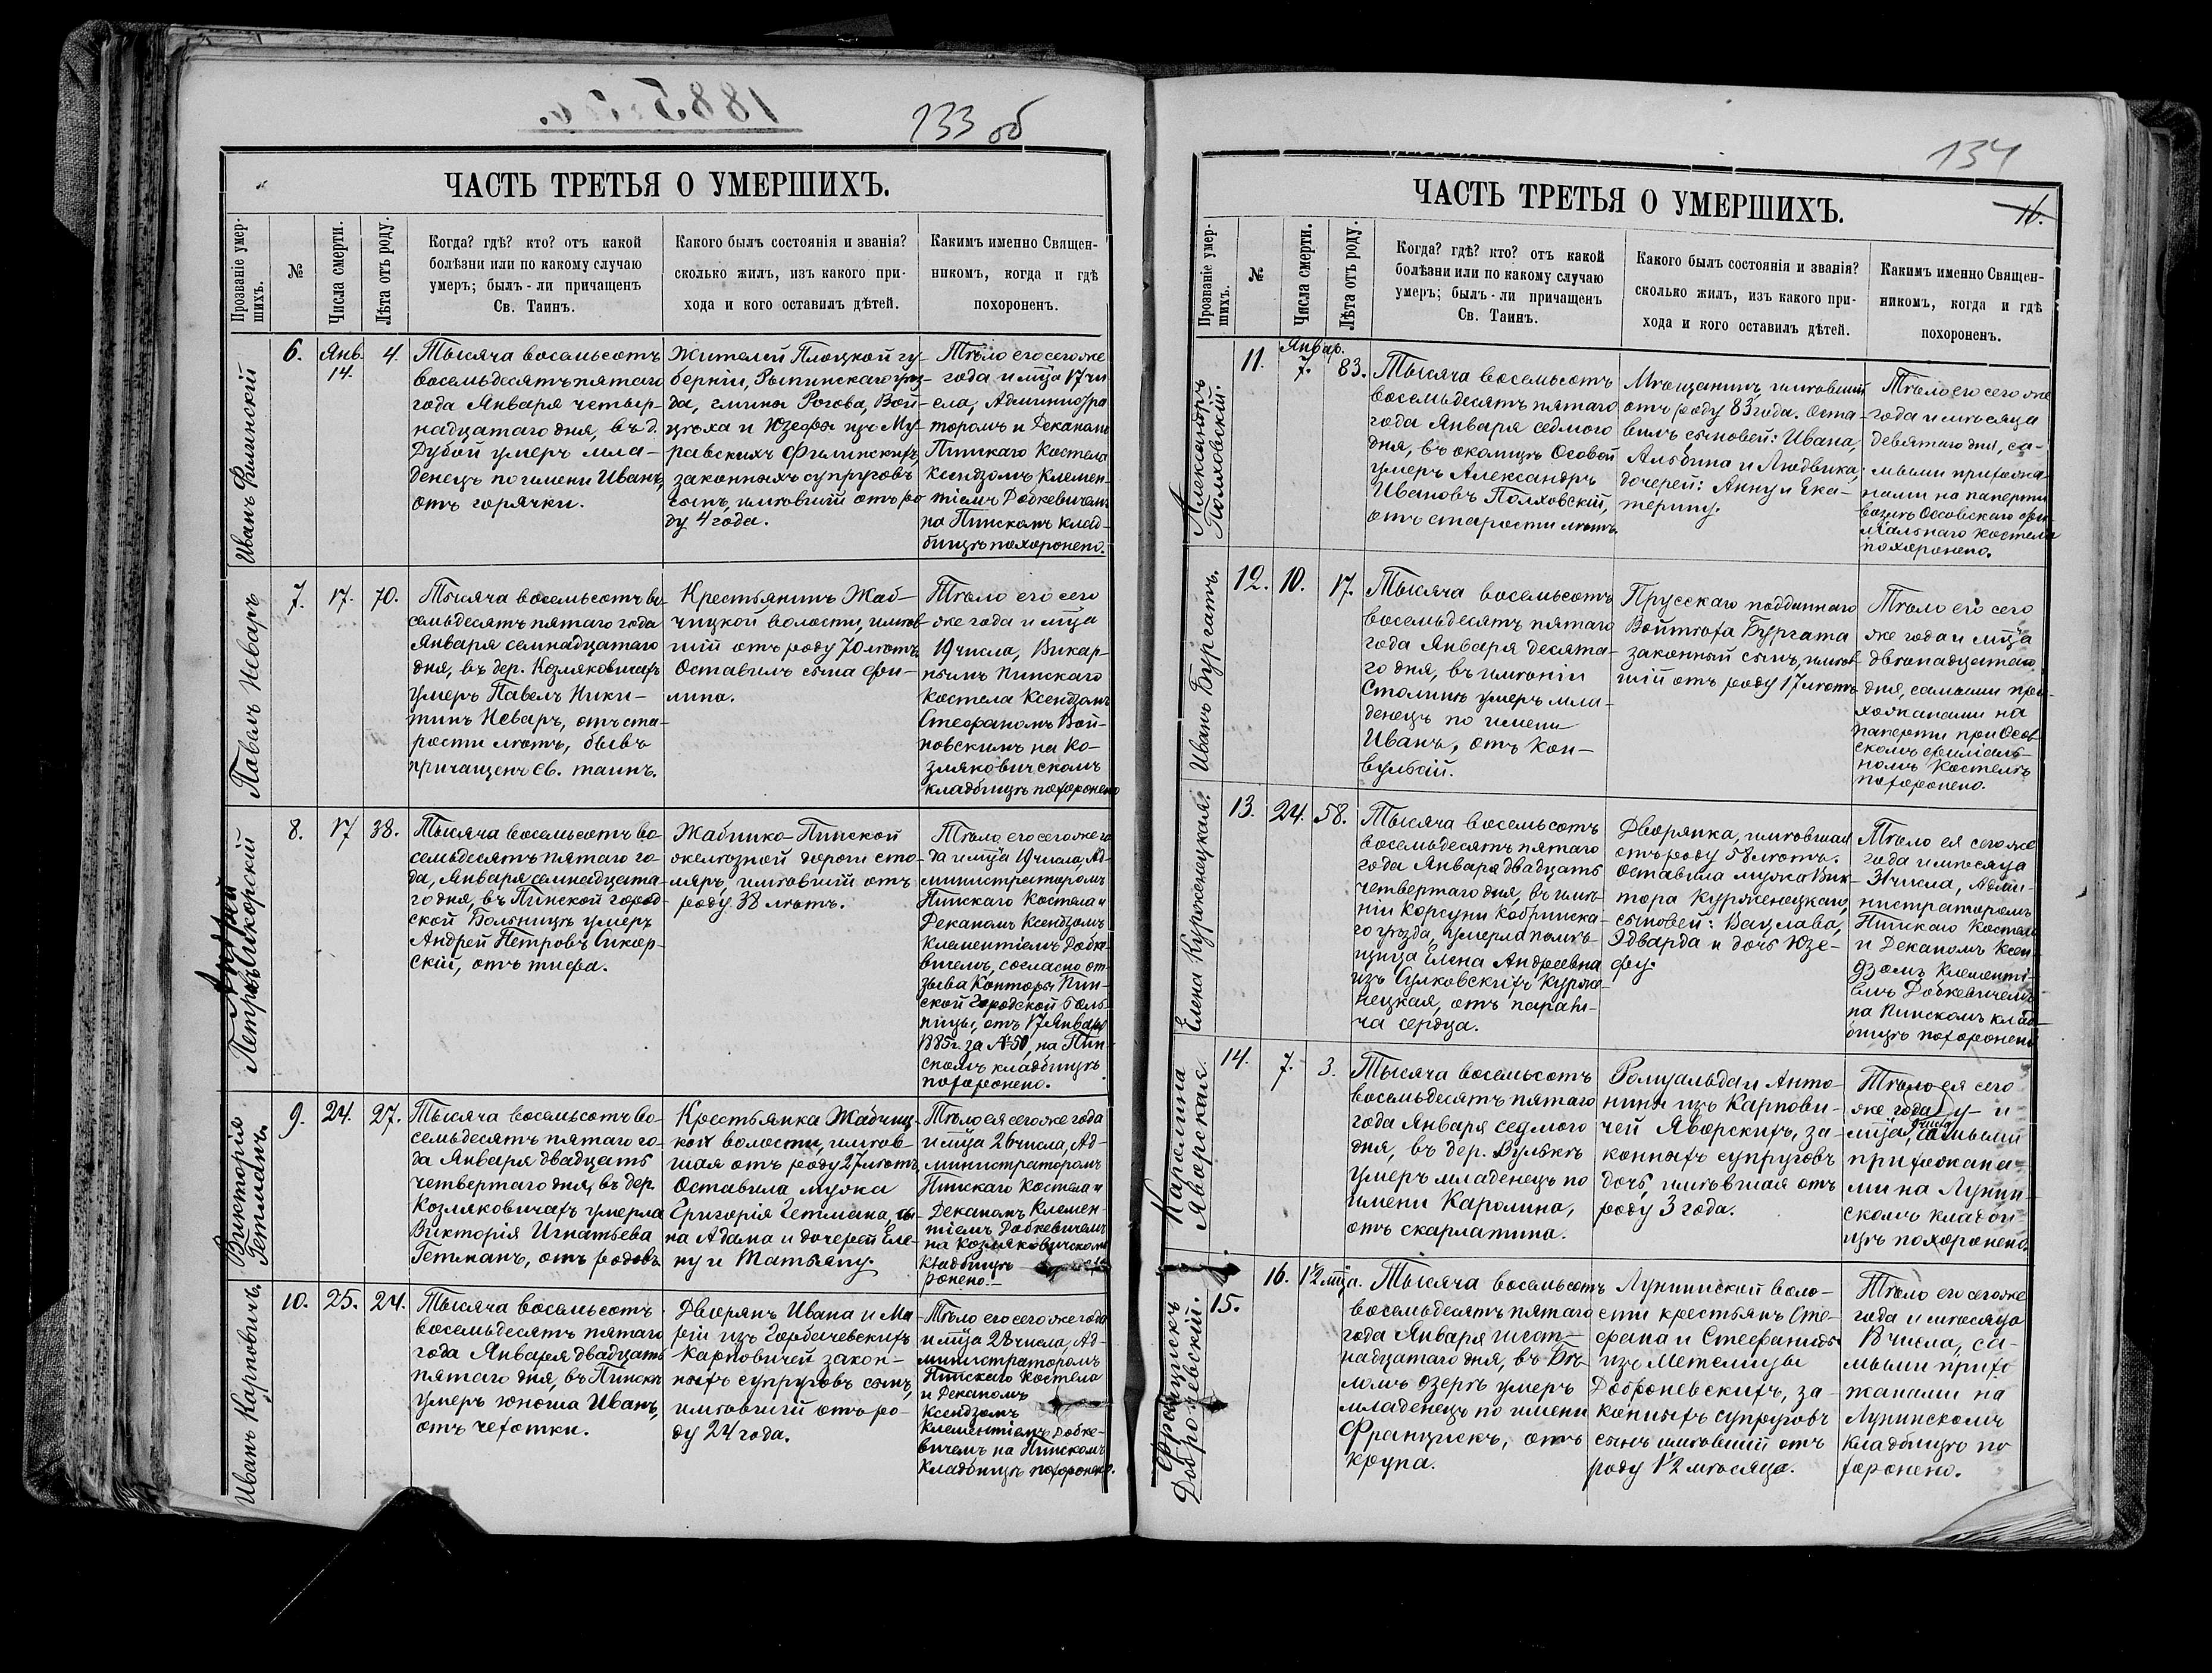 133 об
ЧАСТЬ ТРЕТЬЯ О УМЕРШИХЪ.
Прозваніе умер-
шихъ.
№
Числа смерти.
Лѣта отъ роду.
Когда? гдѣ? кто? отъ какой
болѣзни или по какому случаю
умеръ; былъ-ли причащенъ
Св. Таинъ.
Какого былъ состоянія и званія?
сколько жилъ, изъ какого при-
хода и кого оставилъ дѣтей.
Какимъ именно Священ-
никомъ, когда и гдѣ
похороненъ.
Иванъ Филинскій
6.
Янв.
14.
4.
Тысяча восемьсотъ
восемьдесятъ пятаго
года Января четыр-
надцатаго дня, въ д.
Дубой умеръ мла-
денецъ по имени Иванъ,
отъ горячки.
Жителей Плоцкой гу-
берніи, Рыпинскаго уѣз-
да, гмины Рогова, Вой-
цѣха и Юзефы изъ Му-
равскихъ Филинскихъ,
законныхъ супруговъ
сынъ, имѣвшій отъ ро-
ду 4 года.
Тѣло его сегоже
года и мца 17 чи-
сла, Администра
торомъ и Деканомъ
Пинскаго Костела
Ксендзомъ Клемен-
тіемъ Добкевичемъ
на Пинскомъ клад-
бищѣ похоронено.
Павелъ Неваръ
7.
17.
70.
Тысяча восемьсотъ во-
семьдесятъ пятаго года
Января семнадцатаго
дня, въ дер. Козляковичахъ
умеръ Павелъ Ники-
тинъ Неваръ, отъ ста-
рости лѣтъ, бывъ
причащенъ Св. таинъ.
Крестьянинъ Жаб-
чицкой волости, имѣв-
шій отъ роду 70 лѣтъ.
Оставилъ сына Фи-
липа.
Тѣло его сего
же года и мца
19 числа, Викар-
нымъ Пинскаго
Костела Ксендзомъ
Стефаномъ Вой-
новскимъ на Ко-
зляковичскомъ
кладбищѣ похоронено
Андрей
Петровъ Сикорскій
8.
17
38.
Тысяча восемьсотъ во-
семьдесятъ пятаго го-
да, Января семнадцата-
го дня, въ Пинской город-
ской Больницѣ умеръ
Андрей Петровъ Сикор-
скій, отъ тифа.
Жабинко-Пинской
желѣзной дороги сто-
ляръ, имѣвшій отъ
роду 38 лѣтъ.
Тѣло его сегоже го
да и мца 19 числа, Ад-
министраторомъ
Пинскаго Костела и
Деканомъ Ксендзомъ
Клементіемъ Добке-
вичемъ, согласно от-
зыва Конторы Пин-
ской Городской Боль-
ницы, отъ 17 Января
1885 г. за № 50, на Пин-
скомъ кладбищѣ
похоронено.
Викторія
Гетманъ.
9.
24.
27.
Тысяча восемьсотъ во-
семьдесятъ пятаго го-
да Января двадцать
четвертаго дня, въ дер.
Козляковичахъ умерла
Викторія Игнатьева
Гетманъ, отъ родовъ
Крестьянка Жабчиц-
кой волости, имѣв-
шая отъ роду 27 лѣтъ,
Оставила мужа
Григорія Гетмана, сы-
на Адама и дочерей Еле-
ну и Татьяну.
Тѣло ея сегоже года
и мца 26 числа, Ад-
министраторомъ
Пинскаго Костела и
Деканомъ Клемен-
тіемъ Добкевичемъ
на Козляковичскомъ
кладбищѣ
ронено.
Иванъ Карповичъ.
10.
25.
24.
Тысяча восемьсотъ
восемьдесятъ пятаго
года Января двадцать
пятаго дня, въ Пинскѣ
умеръ юноша Иванъ,
отъ чехотки.
Дворянъ Ивана и Ма
ріи изъ Горбачевскихъ
Карповичей закон-
ныхъ супруговъ сынъ,
имѣвшій отъ ро-
ду 24 года.
Тѣло его сегоже года
и мца 28 числа, Ад-
министраторомъ
Пинскаго Костела
и Деканомъ
Ксендзомъ
Клементіемъ Добке-
вичемъ на Пинскомъ
кладбищѣ похоронено.
134
ЧАСТЬ ТРЕТЬЯ О УМЕРШИХЪ.
16.
Прозваніе умер-
шихъ.
№
Числа смерти.
Лѣта отъ роду.
Когда? гдѣ? кто? отъ какой
болѣзни или по какому случаю
умеръ; былъ-ли причащенъ
Св. Таинъ.
Какого былъ состоянія и званія?
сколько жилъ, изъ какого при-
хода и кого оставилъ дѣтей.
Какимъ именно Священ-
никомъ, когда и гдѣ
похороненъ.
Александръ
Полховскій.
11.
Январ.
7.
83.
Тысяча восемьсотъ
восемьдесятъ пятаго
года Января седмого
дня, въ околицѣ Осовой
умеръ Александръ
Ивановъ Полховскій,
отъ старости лѣтъ.
Мѣщанинъ, имѣвшій
отъ роду 83 года. Оста-
вилъ сыновей: Ивана,
Альбина и Людвика,
дочерей: Анну и Ека-
терину.
Тѣло его сего же
года и мѣсяца
девятаго дня, са-
мыми прихожа-
нами на паперти
возлѣ Оссовскаго фи-
ліальнаго костела
похоронено.
Иванъ Бургатъ.
12.
10.
17.
Тысяча восемьсотъ
восемьдесятъ пятаго
года Января десята-
го дня, въ имѣніи
Столинѣ умеръ мла-
денецъ по имени
Иванъ, отъ Кон-
вульсій.
Прусскаго подданнаго
Войтѣха Бургата
законный сынъ, имѣв-
шій отъ роду 17 лѣтъ
Тѣло его сего
же года и мца
двѣнадцатаго
дня, самыми при-
хожанами на
паперти при Осов-
скомъ филіаль-
номъ Костелѣ
похоронено.
Елена Курженецкая.
13.
24.
58.
Тысяча восемьсотъ
восемьдесятъ пятаго
года Января двадцать
четвертаго дня, въ имѣ-
ніи Корсуни Кобринска-
го уѣзда, умерла помѣ-
щица Елена Андреевна
изъ Сулковскихъ Курже-
нецкая, отъ парали-
ча сердца.
Дворянка, имѣвшая
отъ роду 58 лѣтъ.
Оставила мужа Вик-
тора Курженецкаго,
сыновей: Вацлава,
Эдварда и дочь Юзе-
фу.
Тѣло ея сегоже
года и мѣсяца
31 числа, Адми-
нистраторомъ
Пинскаго Костела
и Деканомъ Ксен-
дзомъ Клементі-
емъ Добкевичемъ
на Пинскомъ клад-
бищѣ похоронено
Каролина
Яворская.
14.
7.
3.
Тысяча восемьсотъ
восемьдесятъ пятаго
года Января седмого
дня, въ дер. Вулькѣ
умеръ младенецъ по
имени Каролина,
отъ скарлатины.
Ромуальда и Анто-
нины изъ Карпови-
чей Яворскихъ, за-
конныхъ супруговъ
дочь, имѣвшая отъ
роду 3 года.
Тѣло ея сего
же года и
мца, самыми
прихожана-
ми на Лунин-
скомъ кладби-
щѣ похоронено.
Францискъ
Доброневскій.
15.
16.
1½ мца.
Тысяча восемьсотъ
восемьдесятъ пятаго
года Января шест-
надцатаго дня, въ Бѣ-
ломъ озерѣ умеръ
младенецъ по имени
Францискъ, отъ
крупа.
Лунинской воло-
сти крестьянъ Сте-
фана и Стефаниды
изъ Метелицы
Доброневскихъ, за-
конныхъ супруговъ
сынъ имѣвшій отъ
роду 1½ мѣсяца.
Тѣло его сегоже
года и мѣсяца
18 числа, са-
мыми прихо
жанами на
Лунинскомъ
кладбищѣ по
хоронено.